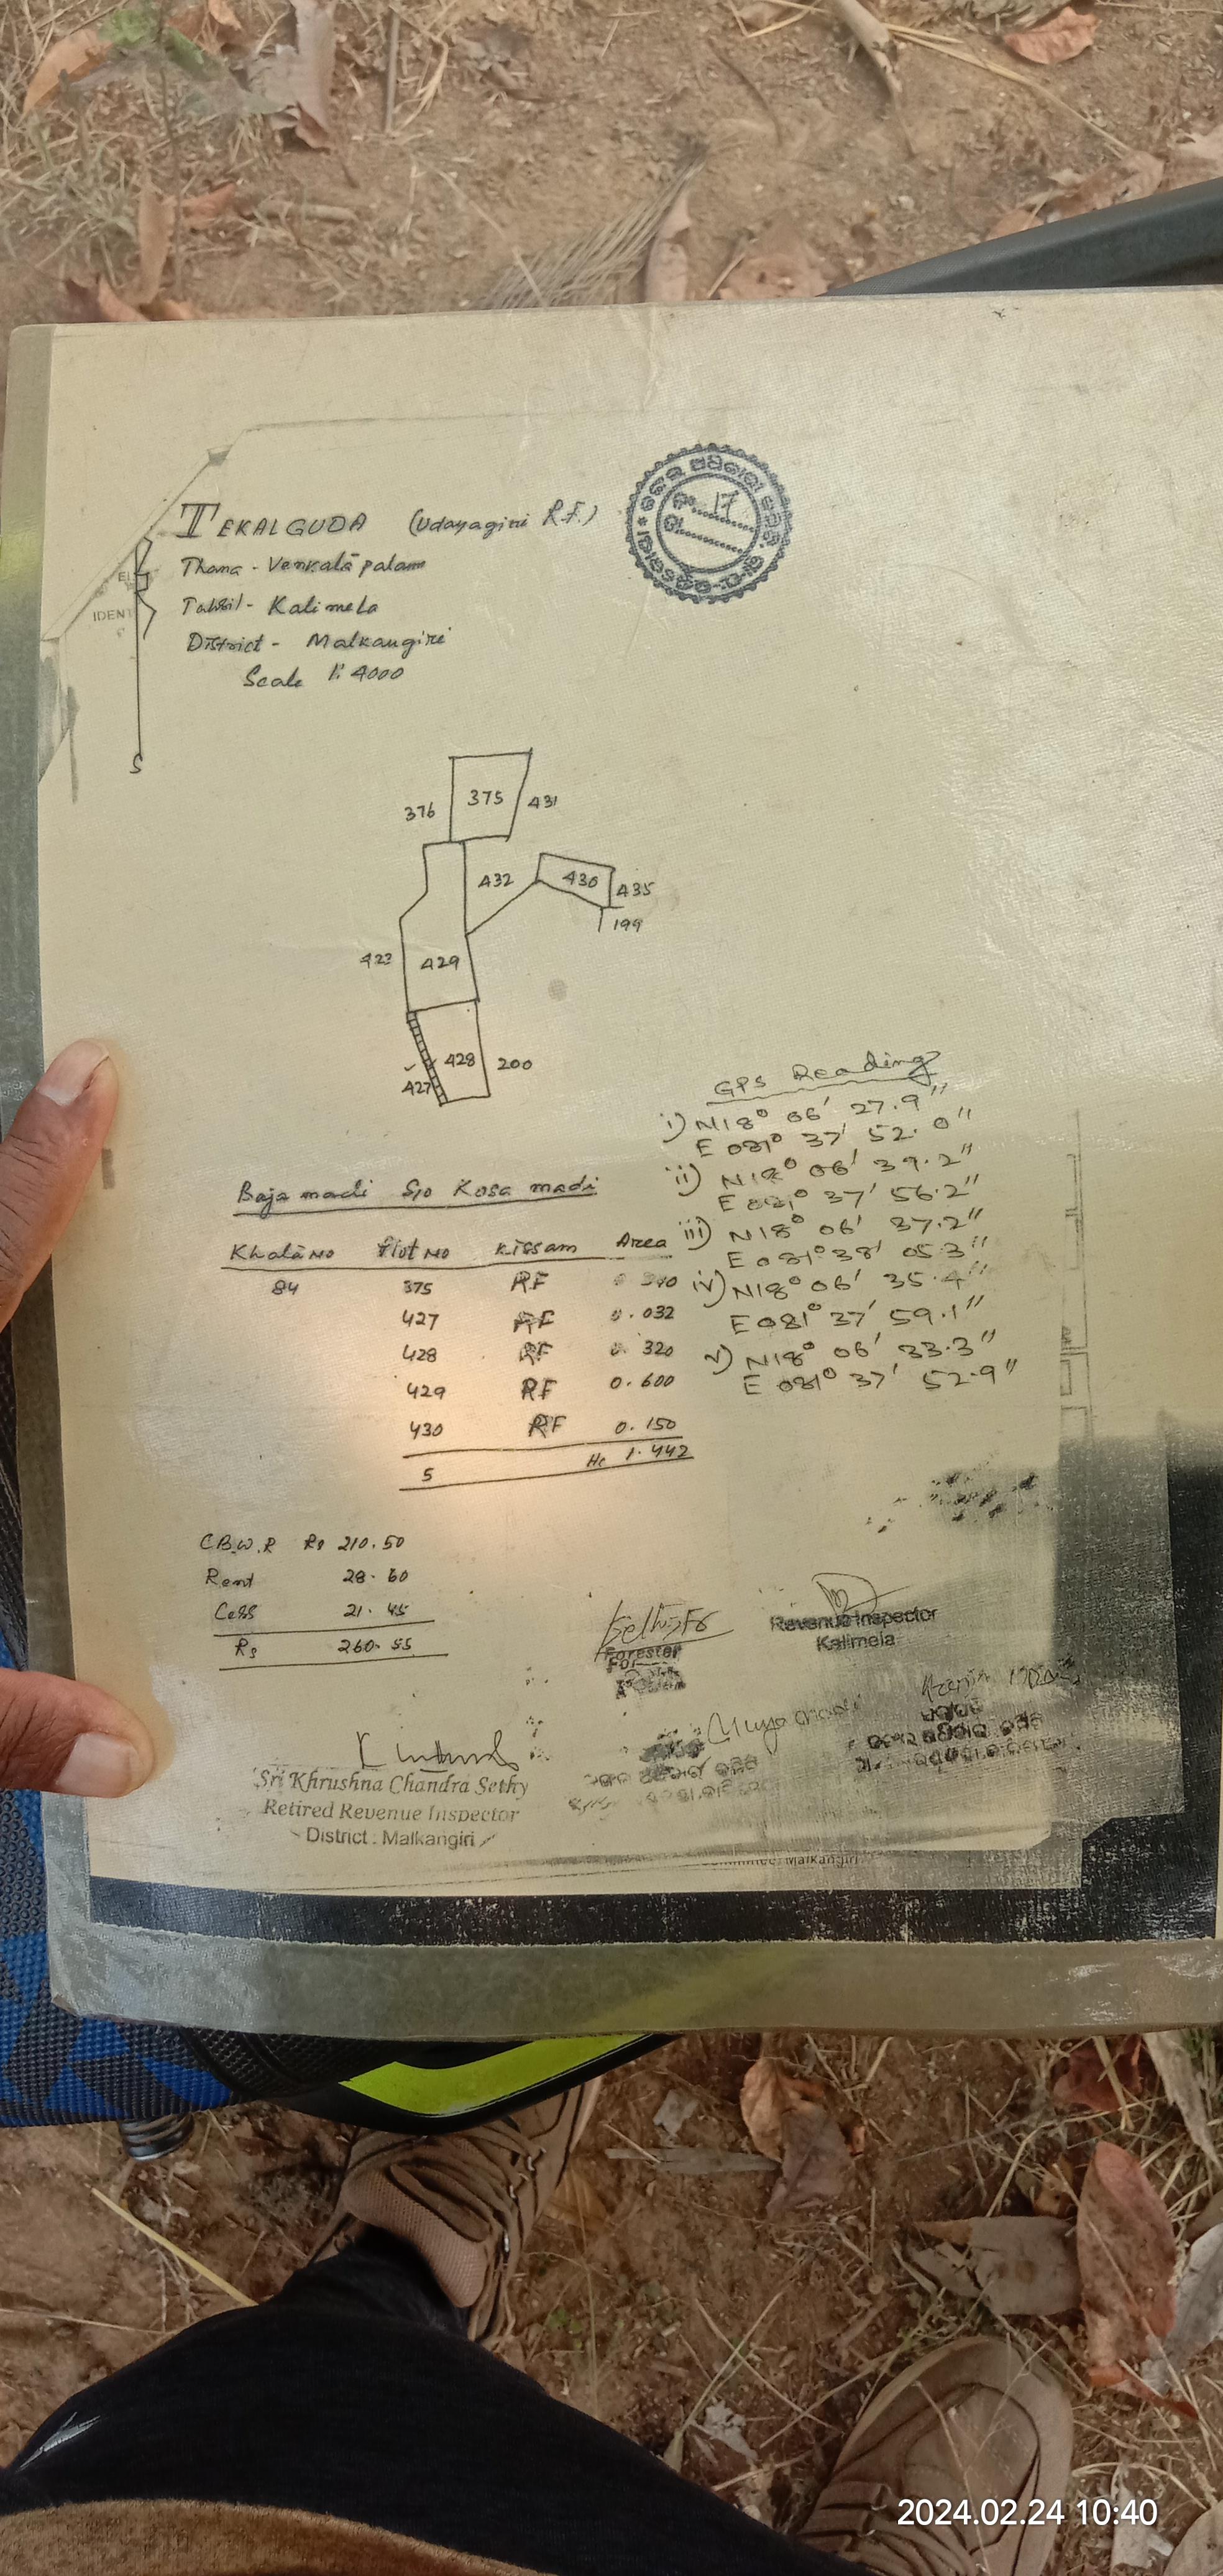 TEKALGUDA (Udayagiri R.F.)
Thana - Venkatapalam
Tahsil - Kalimela
District - Malkangiri
Scale 1:4000
17
IDENT
S
376 375 431
432 430 435
199
423 429
428 200
427
GPS Reading
i) N18° 06' 27.9"
E 081° 37' 52.0"
ii) N18° 06' 39.2"
E 081° 37' 56.2"
iii) N18° 06' 37.2"
E 081° 38' 05.3"
iv) N18° 06' 35.4"
E 081° 37' 59.1"
v) N18° 06' 33.3"
E 081° 37' 52.9"
Baja madi S/o Kosa madi
Khata No Plot No Kissam Area
84 375 RF
427 RF 0.032
428 RF 0.320
429 RF 0.600
430 RF 0.150
5 Hc 1.442
C.B.W.R Rs 210.50
Rent 28.60
Cess 21.45
Rs 260.55
Forester
Revenue Inspector
Kalimela
Sri Khrushna Chandra Sethy
Retired Revenue Inspector
District : Malkangiri
Malkangiri
2024.02.24 10:40